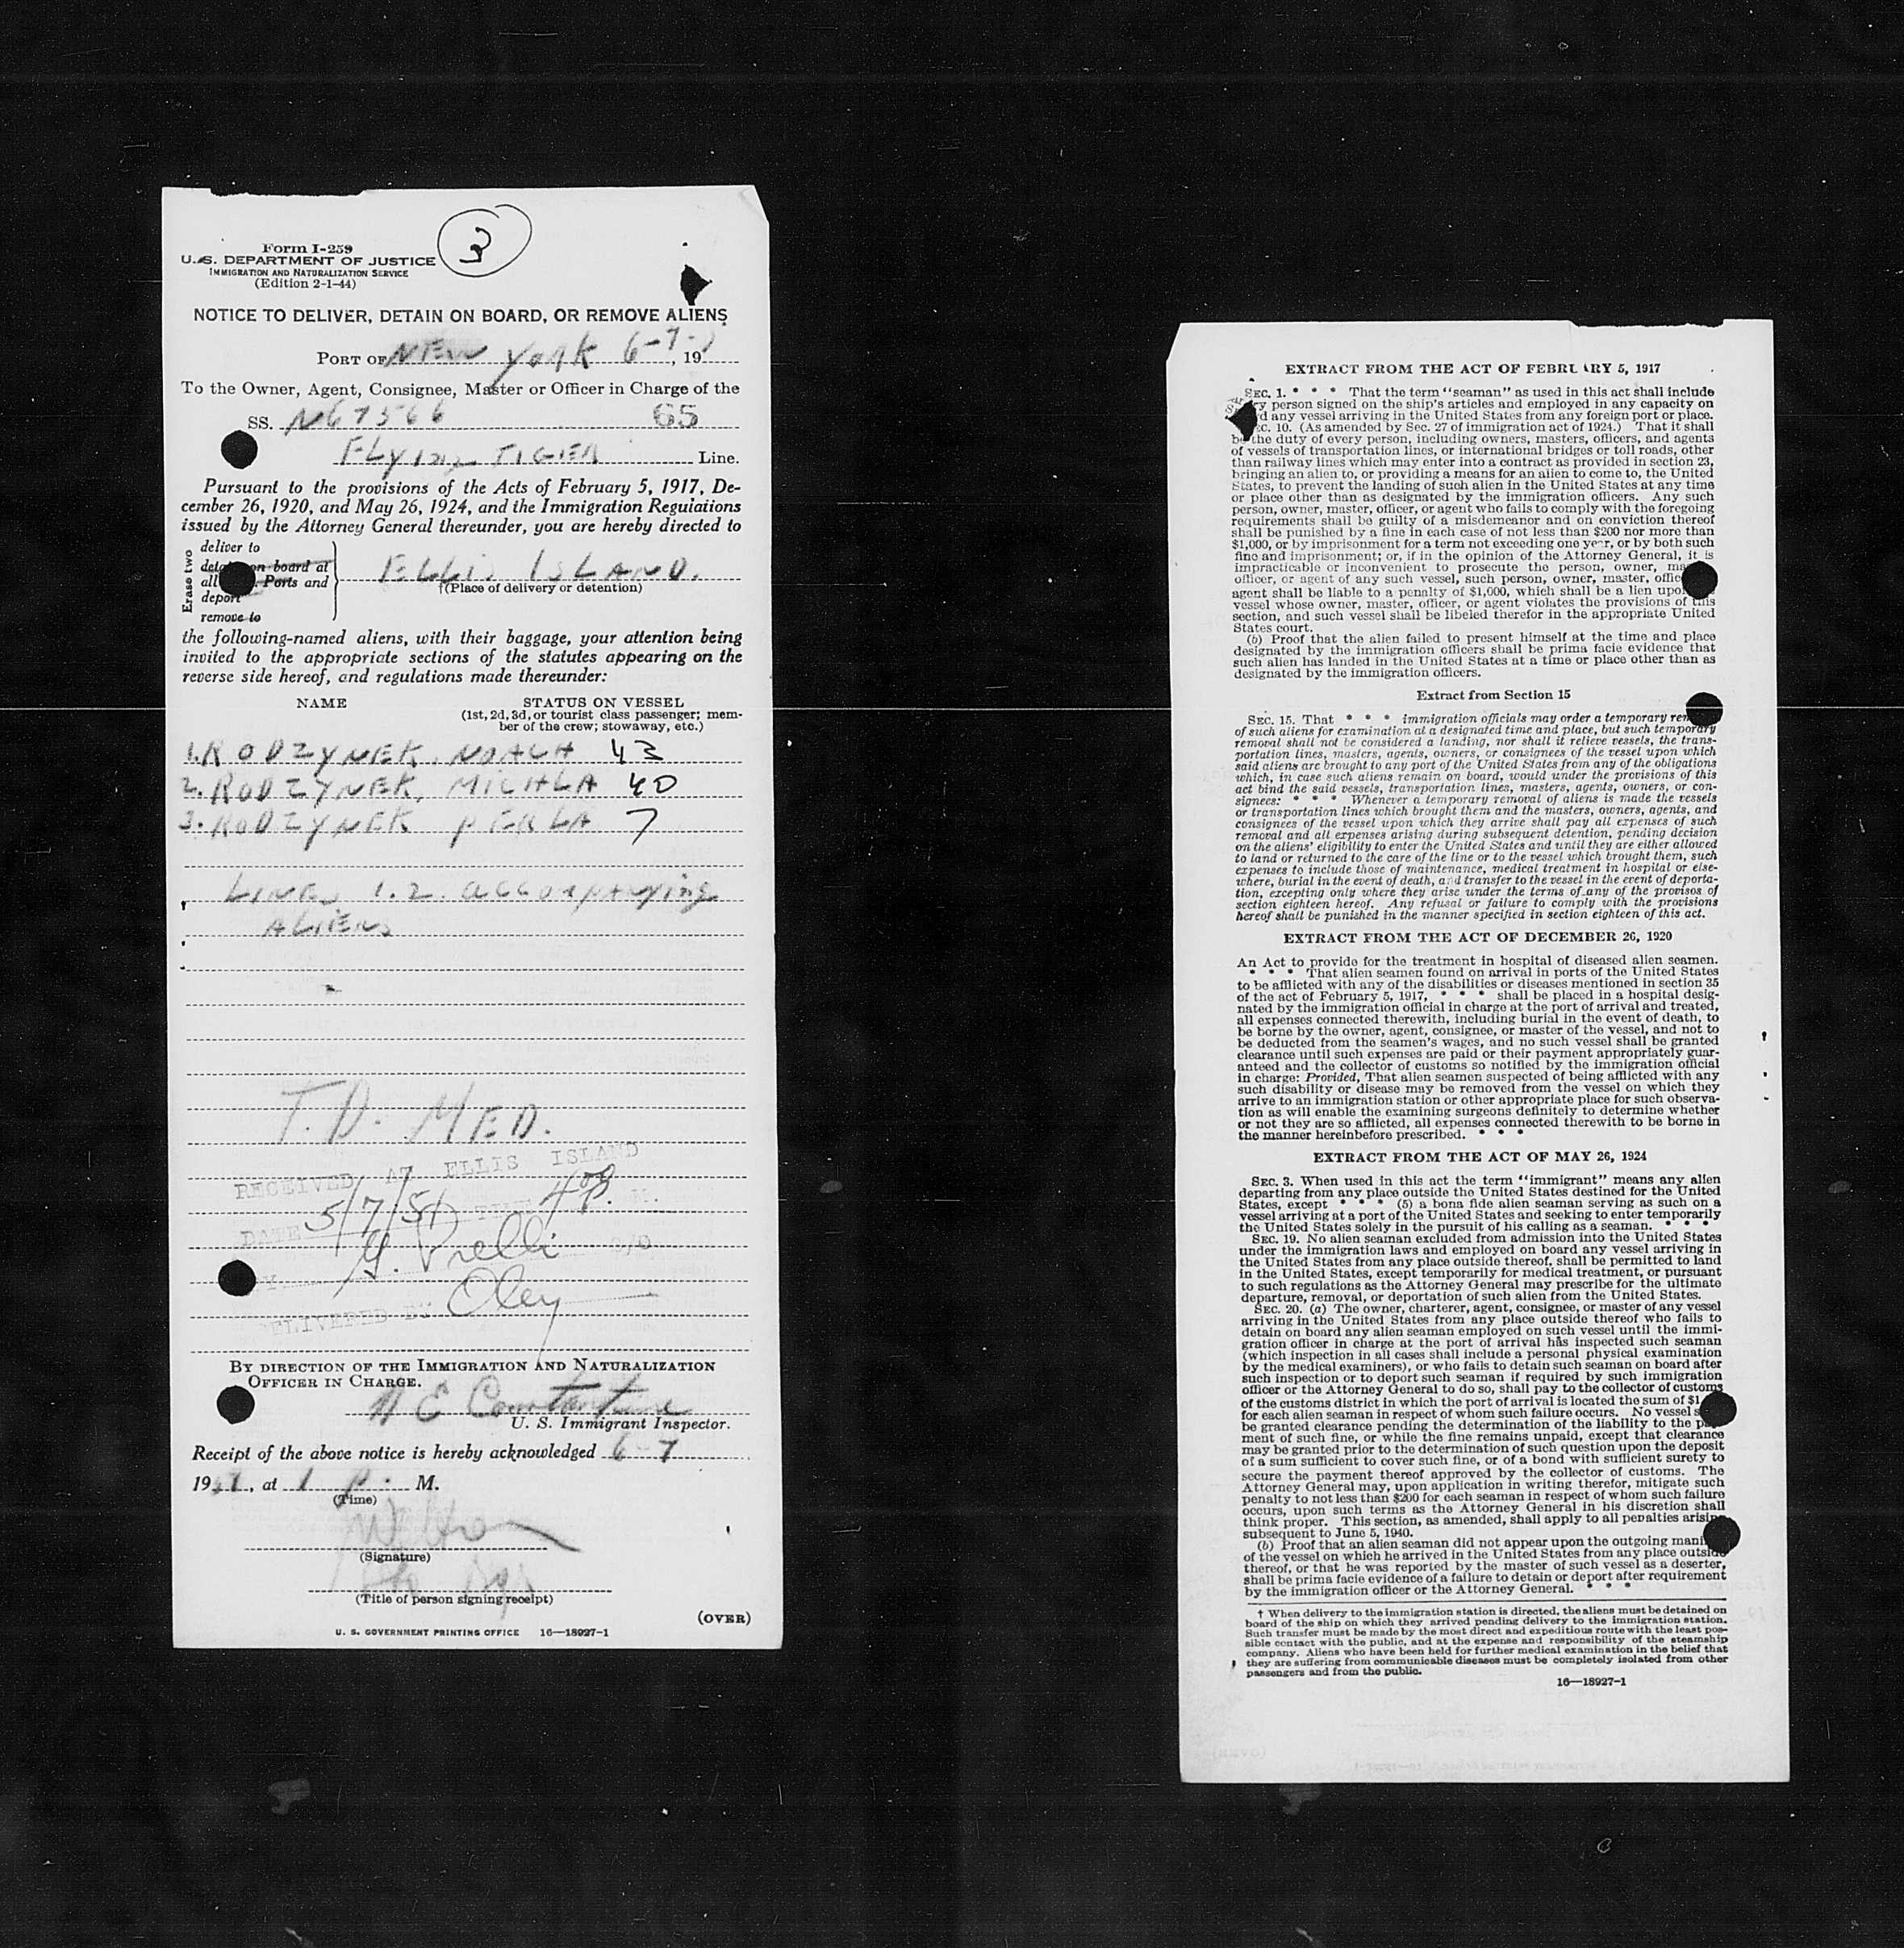 3
Form I-259
U. S. DEPARTMENT OF JUSTICE
IMMIGRATION AND NATURALIZATION SERVICE
(Edition 2-1-44)
NOTICE TO DELIVER, DETAIN ON BOARD, OR REMOVE ALIENS
PORT OF NEW York 6-7- , 19
To the Owner, Agent, Consignee, Master or Officer in Charge of the
SS. N67566 65
FLYING TIGER Line.
Pursuant to the provisions of the Acts of February 5, 1917, De-
cember 26, 1920, and May 26, 1924, and the Immigration Regulations
issued by the Attorney General thereunder, you are hereby directed to
Erase two
deliver to
on board at
all Ports and
deport
remove to
ELLIS ISLAND.
†(Place of delivery or detention)
the following-named aliens, with their baggage, your attention being
invited to the appropriate sections of the statutes appearing on the
reverse side hereof, and regulations made thereunder:
NAME STATUS ON VESSEL
(1st, 2d, 3d, or tourist class passenger; mem-
ber of the crew; stowaway, etc.)
1. RODZYNEK, NOACH 43
2. RODZYNEK, MICHLA 40
3. RODZYNEK PERLA 7
LINES 1. 2. accompanying
ALIENS
T.D. MED.
RECEIVED AT ELLIS ISLAND
DATE 5/7/51 TIME 4 00 P. M.
G. Prelli
DELIVERED BY Oley
BY DIRECTION OF THE IMMIGRATION AND NATURALIZATION
OFFICER IN CHARGE.
N E Constantine
U. S. Immigrant Inspector.
Receipt of the above notice is hereby acknowledged 6-7
19 , at 1 P. M.
(Time)
(Signature)
(Title of person signing receipt)
(OVER)
U. S. GOVERNMENT PRINTING OFFICE 16—18927-1
EXTRACT FROM THE ACT OF FEBRUARY 5, 1917
SEC. 1. * * * That the term "seaman" as used in this act shall include
person signed on the ship's articles and employed in any capacity on
any vessel arriving in the United States from any foreign port or place.
SEC. 10. (As amended by Sec. 27 of immigration act of 1924.) That it shall
be the duty of every person, including owners, masters, officers, and agents
of vessels of transportation lines, or international bridges or toll roads, other
than railway lines which may enter into a contract as provided in section 23,
bringing an alien to, or providing a means for an alien to come to, the United
States, to prevent the landing of such alien in the United States at any time
or place other than as designated by the immigration officers. Any such
person, owner, master, officer, or agent who fails to comply with the foregoing
requirements shall be guilty of a misdemeanor and on conviction thereof
shall be punished by a fine in each case of not less than $200 nor more than
$1,000, or by imprisonment for a term not exceeding one year, or by both such
fine and imprisonment; or, if in the opinion of the Attorney General, it is
impracticable or inconvenient to prosecute the person, owner, master,
officer, or agent of any such vessel, such person, owner, master, officer, or
agent shall be liable to a penalty of $1,000, which shall be a lien upon the
vessel whose owner, master, officer, or agent violates the provisions of this
section, and such vessel shall be libeled therefor in the appropriate United
States court.
(b) Proof that the alien failed to present himself at the time and place
designated by the immigration officers shall be prima facie evidence that
such alien has landed in the United States at a time or place other than as
designated by the immigration officers.
Extract from Section 15
SEC. 15. That * * * immigration officials may order a temporary removal
of such aliens for examination at a designated time and place, but such temporary
removal shall not be considered a landing, nor shall it relieve vessels, the trans-
portation lines, masters, agents, owners, or consignees of the vessel upon which
said aliens are brought to any port of the United States from any of the obligations
which, in case such aliens remain on board, would under the provisions of this
act bind the said vessels, transportation lines, masters, agents, owners, or con-
signees: * * * Whenever a temporary removal of aliens is made the vessels
or transportation lines which brought them and the masters, owners, agents, and
consignees of the vessel upon which they arrive shall pay all expenses of such
removal and all expenses arising during subsequent detention, pending decision
on the aliens' eligibility to enter the United States and until they are either allowed
to land or returned to the care of the line or to the vessel which brought them, such
expenses to include those of maintenance, medical treatment in hospital or else-
where, burial in the event of death, and transfer to the vessel in the event of deporta-
tion, excepting only where they arise under the terms of any of the provisos of
section eighteen hereof. Any refusal or failure to comply with the provisions
hereof shall be punished in the manner specified in section eighteen of this act.
EXTRACT FROM THE ACT OF DECEMBER 26, 1920
An Act to provide for the treatment in hospital of diseased alien seamen.
* * * That alien seamen found on arrival in ports of the United States
to be afflicted with any of the disabilities or diseases mentioned in section 35
of the act of February 5, 1917, * * * shall be placed in a hospital desig-
nated by the immigration official in charge at the port of arrival and treated,
all expenses connected therewith, including burial in the event of death, to
be borne by the owner, agent, consignee, or master of the vessel, and not to
be deducted from the seamen's wages, and no such vessel shall be granted
clearance until such expenses are paid or their payment appropriately guar-
anteed and the collector of customs so notified by the immigration official
in charge: Provided, That alien seamen suspected of being afflicted with any
such disability or disease may be removed from the vessel on which they
arrive to an immigration station or other appropriate place for such observa-
tion as will enable the examining surgeons definitely to determine whether
or not they are so afflicted, all expenses connected therewith to be borne in
the manner hereinbefore prescribed. * * *
EXTRACT FROM THE ACT OF MAY 26, 1924
SEC. 3. When used in this act the term "immigrant" means any alien
departing from any place outside the United States destined for the United
States, except * * * (5) a bona fide alien seaman serving as such on a
vessel arriving at a port of the United States and seeking to enter temporarily
the United States solely in the pursuit of his calling as a seaman. * * *
SEC. 19. No alien seaman excluded from admission into the United States
under the immigration laws and employed on board any vessel arriving in
the United States from any place outside thereof, shall be permitted to land
in the United States, except temporarily for medical treatment, or pursuant
to such regulations as the Attorney General may prescribe for the ultimate
departure, removal, or deportation of such alien from the United States.
SEC. 20. (a) The owner, charterer, agent, consignee, or master of any vessel
arriving in the United States from any place outside thereof who fails to
detain on board any alien seaman employed on such vessel until the immi-
gration officer in charge at the port of arrival has inspected such seaman
(which inspection in all cases shall include a personal physical examination
by the medical examiners), or who fails to detain such seaman on board after
such inspection or to deport such seaman if required by such immigration
officer or the Attorney General to do so, shall pay to the collector of customs
of the customs district in which the port of arrival is located the sum of $1
for each alien seaman in respect of whom such failure occurs. No vessel
be granted clearance pending the determination of the liability to the pay-
ment of such fine, or while the fine remains unpaid, except that clearance
may be granted prior to the determination of such question upon the deposit
of a sum sufficient to cover such fine, or of a bond with sufficient surety to
secure the payment thereof approved by the collector of customs. The
Attorney General may, upon application in writing therefor, mitigate such
penalty to not less than $200 for each seaman in respect of whom such failure
occurs, upon such terms as the Attorney General in his discretion shall
think proper. This section, as amended, shall apply to all penalties arising
subsequent to June 5, 1940.
(b) Proof that an alien seaman did not appear upon the outgoing manifest
of the vessel on which he arrived in the United States from any place outside
thereof, or that he was reported by the master of such vessel as a deserter,
shall be prima facie evidence of a failure to detain or deport after requirement
by the immigration officer or the Attorney General. * * *
† When delivery to the immigration station is directed, the aliens must be detained on
board of the ship on which they arrived pending delivery to the immigration station.
Such transfer must be made by the most direct and expeditious route with the least pos-
sible contact with the public, and at the expense and responsibility of the steamship
company. Aliens who have been held for further medical examination in the belief that
they are suffering from communicable diseases must be completely isolated from other
passengers and from the public.
16—18927-1